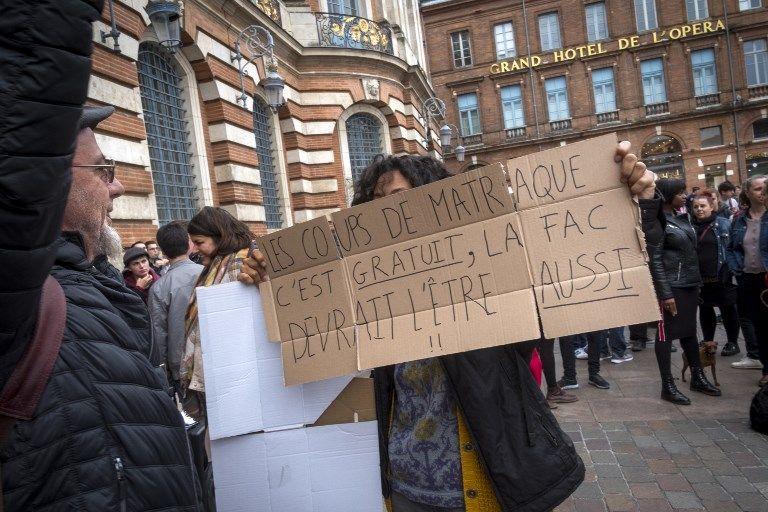 GRAND HOTEL DE L'OPÉRA
LES COUPS DE MATRAQUE
C'EST GRATUIT, LA FAC
DEVRAIT L'ÊTRE AUSSI
!!